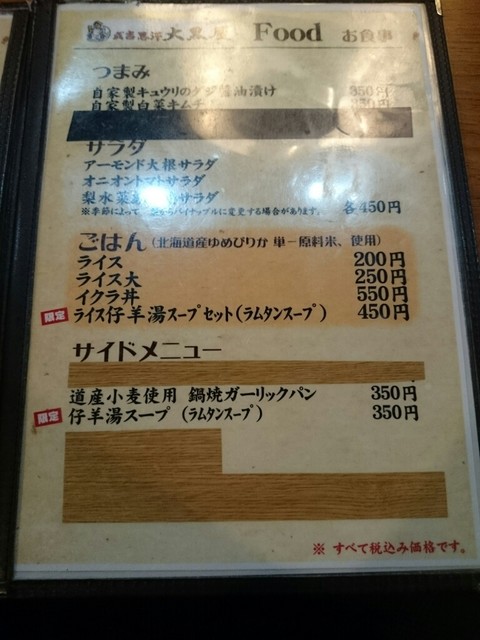 成吉思汗 大黒屋 Food お食事
つまみ
自家製キュウリのタジン醤油漬け 350円
自家製白菜キムチ 350円
サラダ
アーモンド大根サラダ
オニオントマトサラダ
梨水菜 サラダ
※季節によって からパイナップルに変更する場合があります。 各450円
ごはん(北海道産ゆめぴりか 単一原料米、使用)
ライス 200円
ライス大 250円
イクラ丼 550円
限定 ライス仔羊湯スープセット(ラムタンスープ) 450円
サイドメニュー
道産小麦使用 鍋焼ガーリックパン 350円
限定 仔羊湯スープ (ラムタンスープ) 350円
※ すべて税込み価格です。